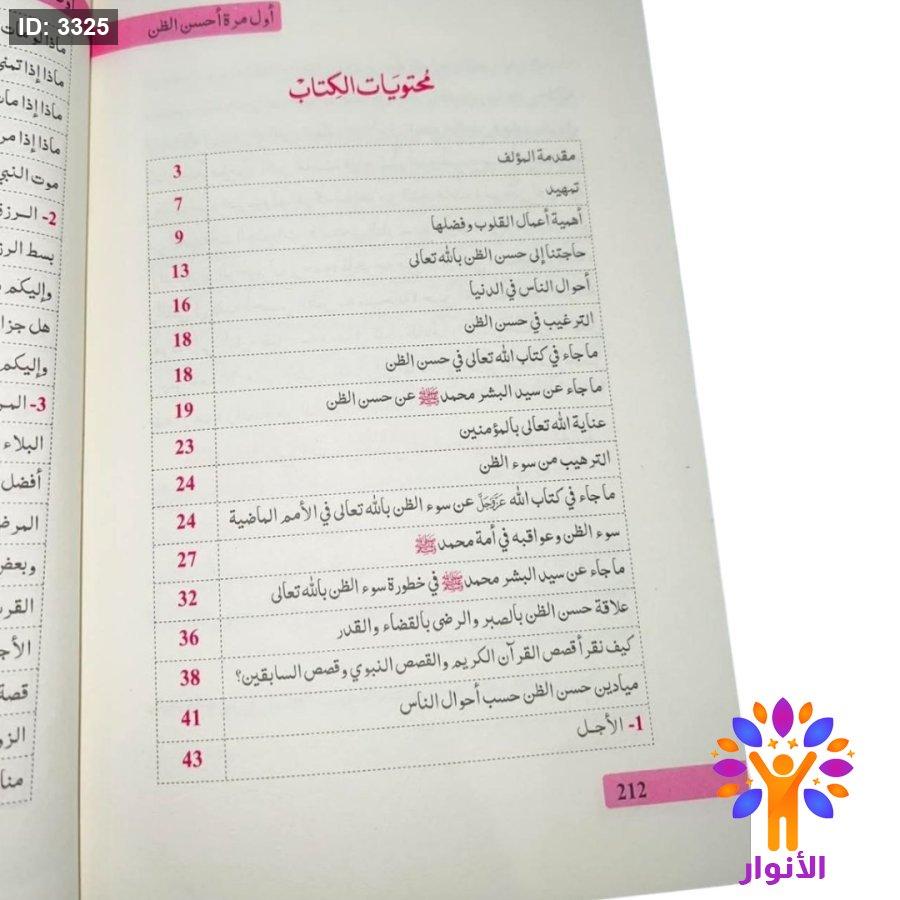 ID: 3325
أول مرة أحسن الظن
مُحتويَات الكِتابْ
مقدمة المؤلف 3
تمهيد 7
أهمية أعمال القلوب وفضلها 9
حاجتنا إلى حسن الظن بالله تعالى 13
أحوال الناس في الدنيا 16
الترغيب في حسن الظن 18
ما جاء في كتاب الله تعالى في حسن الظن 18
ما جاء عن سيد البشر محمد ﷺ عن حسن الظن 19
عناية الله تعالى بالمؤمنين 23
الترهيب من سوء الظن 24
ما جاء في كتاب الله عَزَّوَجَلَّ عن سوء الظن بالله تعالى في الأمم الماضية 24
سوء الظن وعواقبه في أمة محمد ﷺ 27
ما جاء عن سيد البشر محمد ﷺ في خطورة سوء الظن بالله تعالى 32
علاقة حسن الظن بالصبر والرضى بالقضاء والقدر 36
كيف نقرأ قصص القرآن الكريم والقصص النبوي وقصص السابقين؟ 38
ميادين حسن الظن حسب أحوال الناس 41
1- الأجل 43
212
ماذا إذا تمنى
ماذا إذا مات
ماذا إذا مر
موت النبي
2- الرزق
بسط الرز
وإليكم
هل جزا
وإليكم
3- المر
البلاء
أفضل
المرض
وبعض
القر
الأج
قصة
الزو
منا
الأنوار